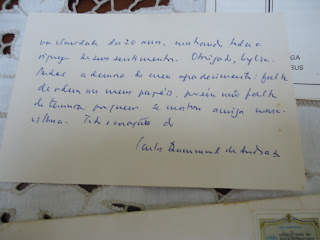 na claridade dos 20 anos, mostrando toda a
riqueza de seus sentimentos. Obrigado, Lylia.
Perdoe a demora do meu agradecimento: falta
de ordem nos meus papéis, porém não falta
de ternura por quem se mostra amiga mara-
vilhosa. Todo o coração do
Carlos Drummond de Andrade
GA
SUS